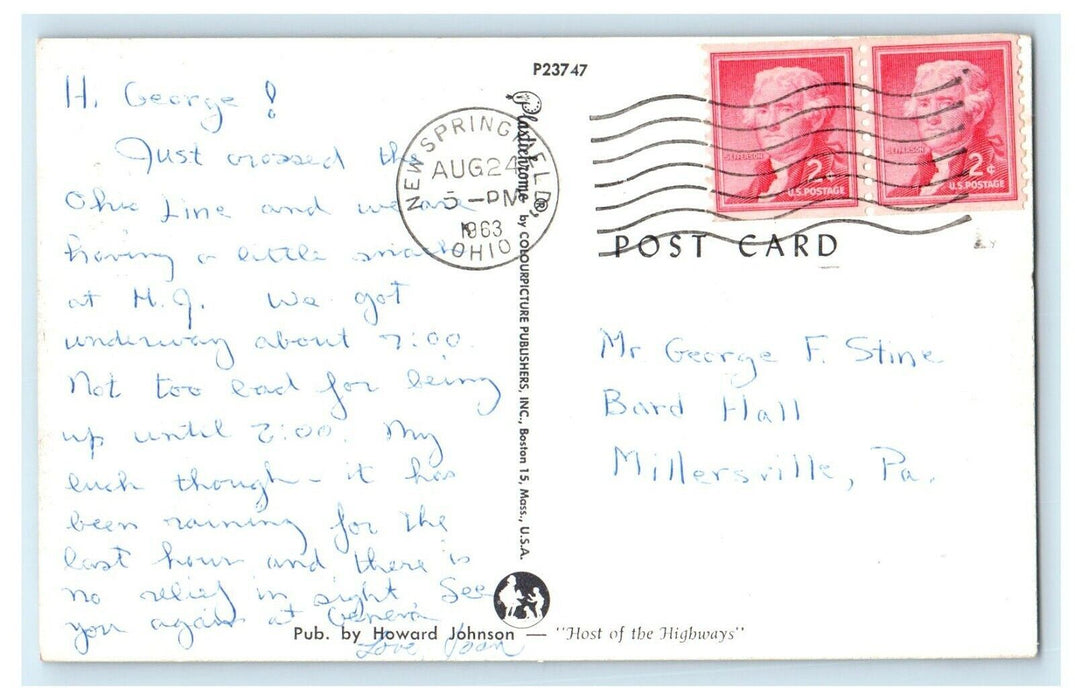 P23747
Hi George!
Just crossed the
Ohio Line and we are
having a little snack
at H.J. We got
underway about 7:00.
Not too bad for being
up until 2:00. My
luck though - it has
been raining for the
last hour and there is
no relief in sight. See
you again at Geneva
Love, Joan
NEW SPRINGFIELD,
AUG 24
5 - PM
1963
OHIO
Plastichrome ® by COLOURPICTURE PUBLISHERS, INC., Boston 15, Mass., U.S.A.
JEFFERSON
2¢
U.S. POSTAGE
JEFFERSON
2¢
U.S. POSTAGE
POST CARD
Mr George F. Stine
Bard Hall
Millersville, Pa.
Pub. by Howard Johnson — "Host of the Highways"